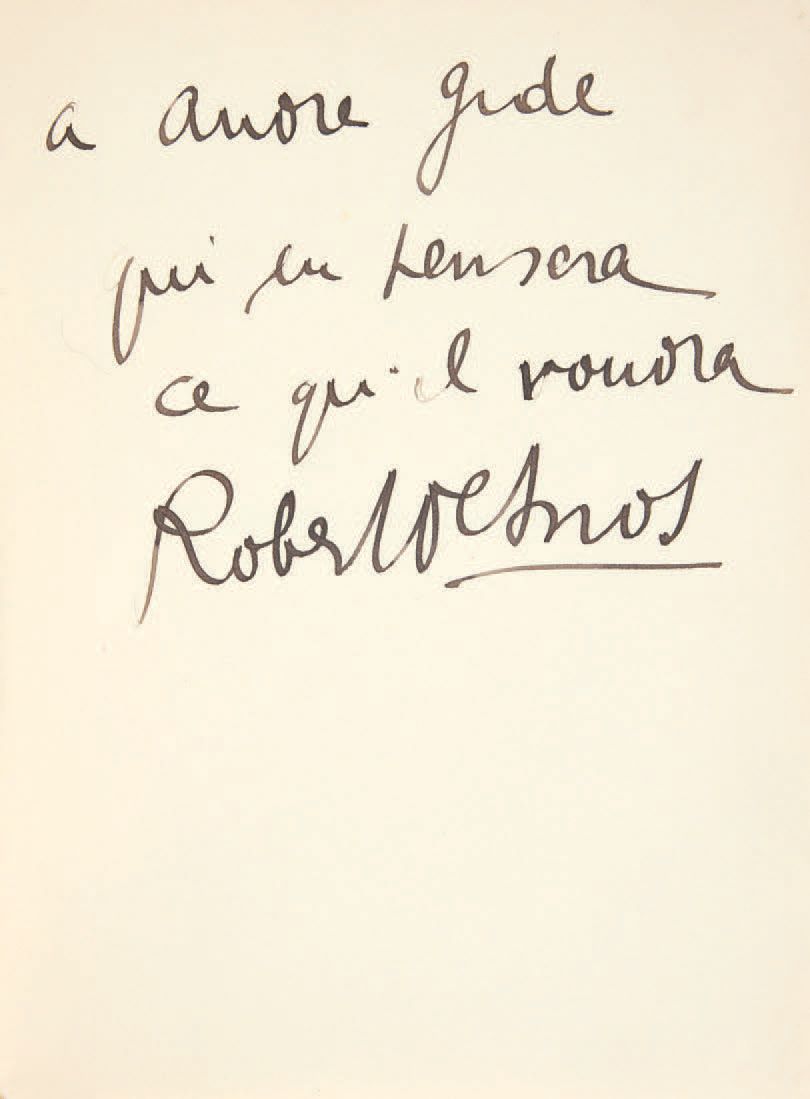 a andre gide
qui en pensera
ce qu'il voudra
Robert Desnos